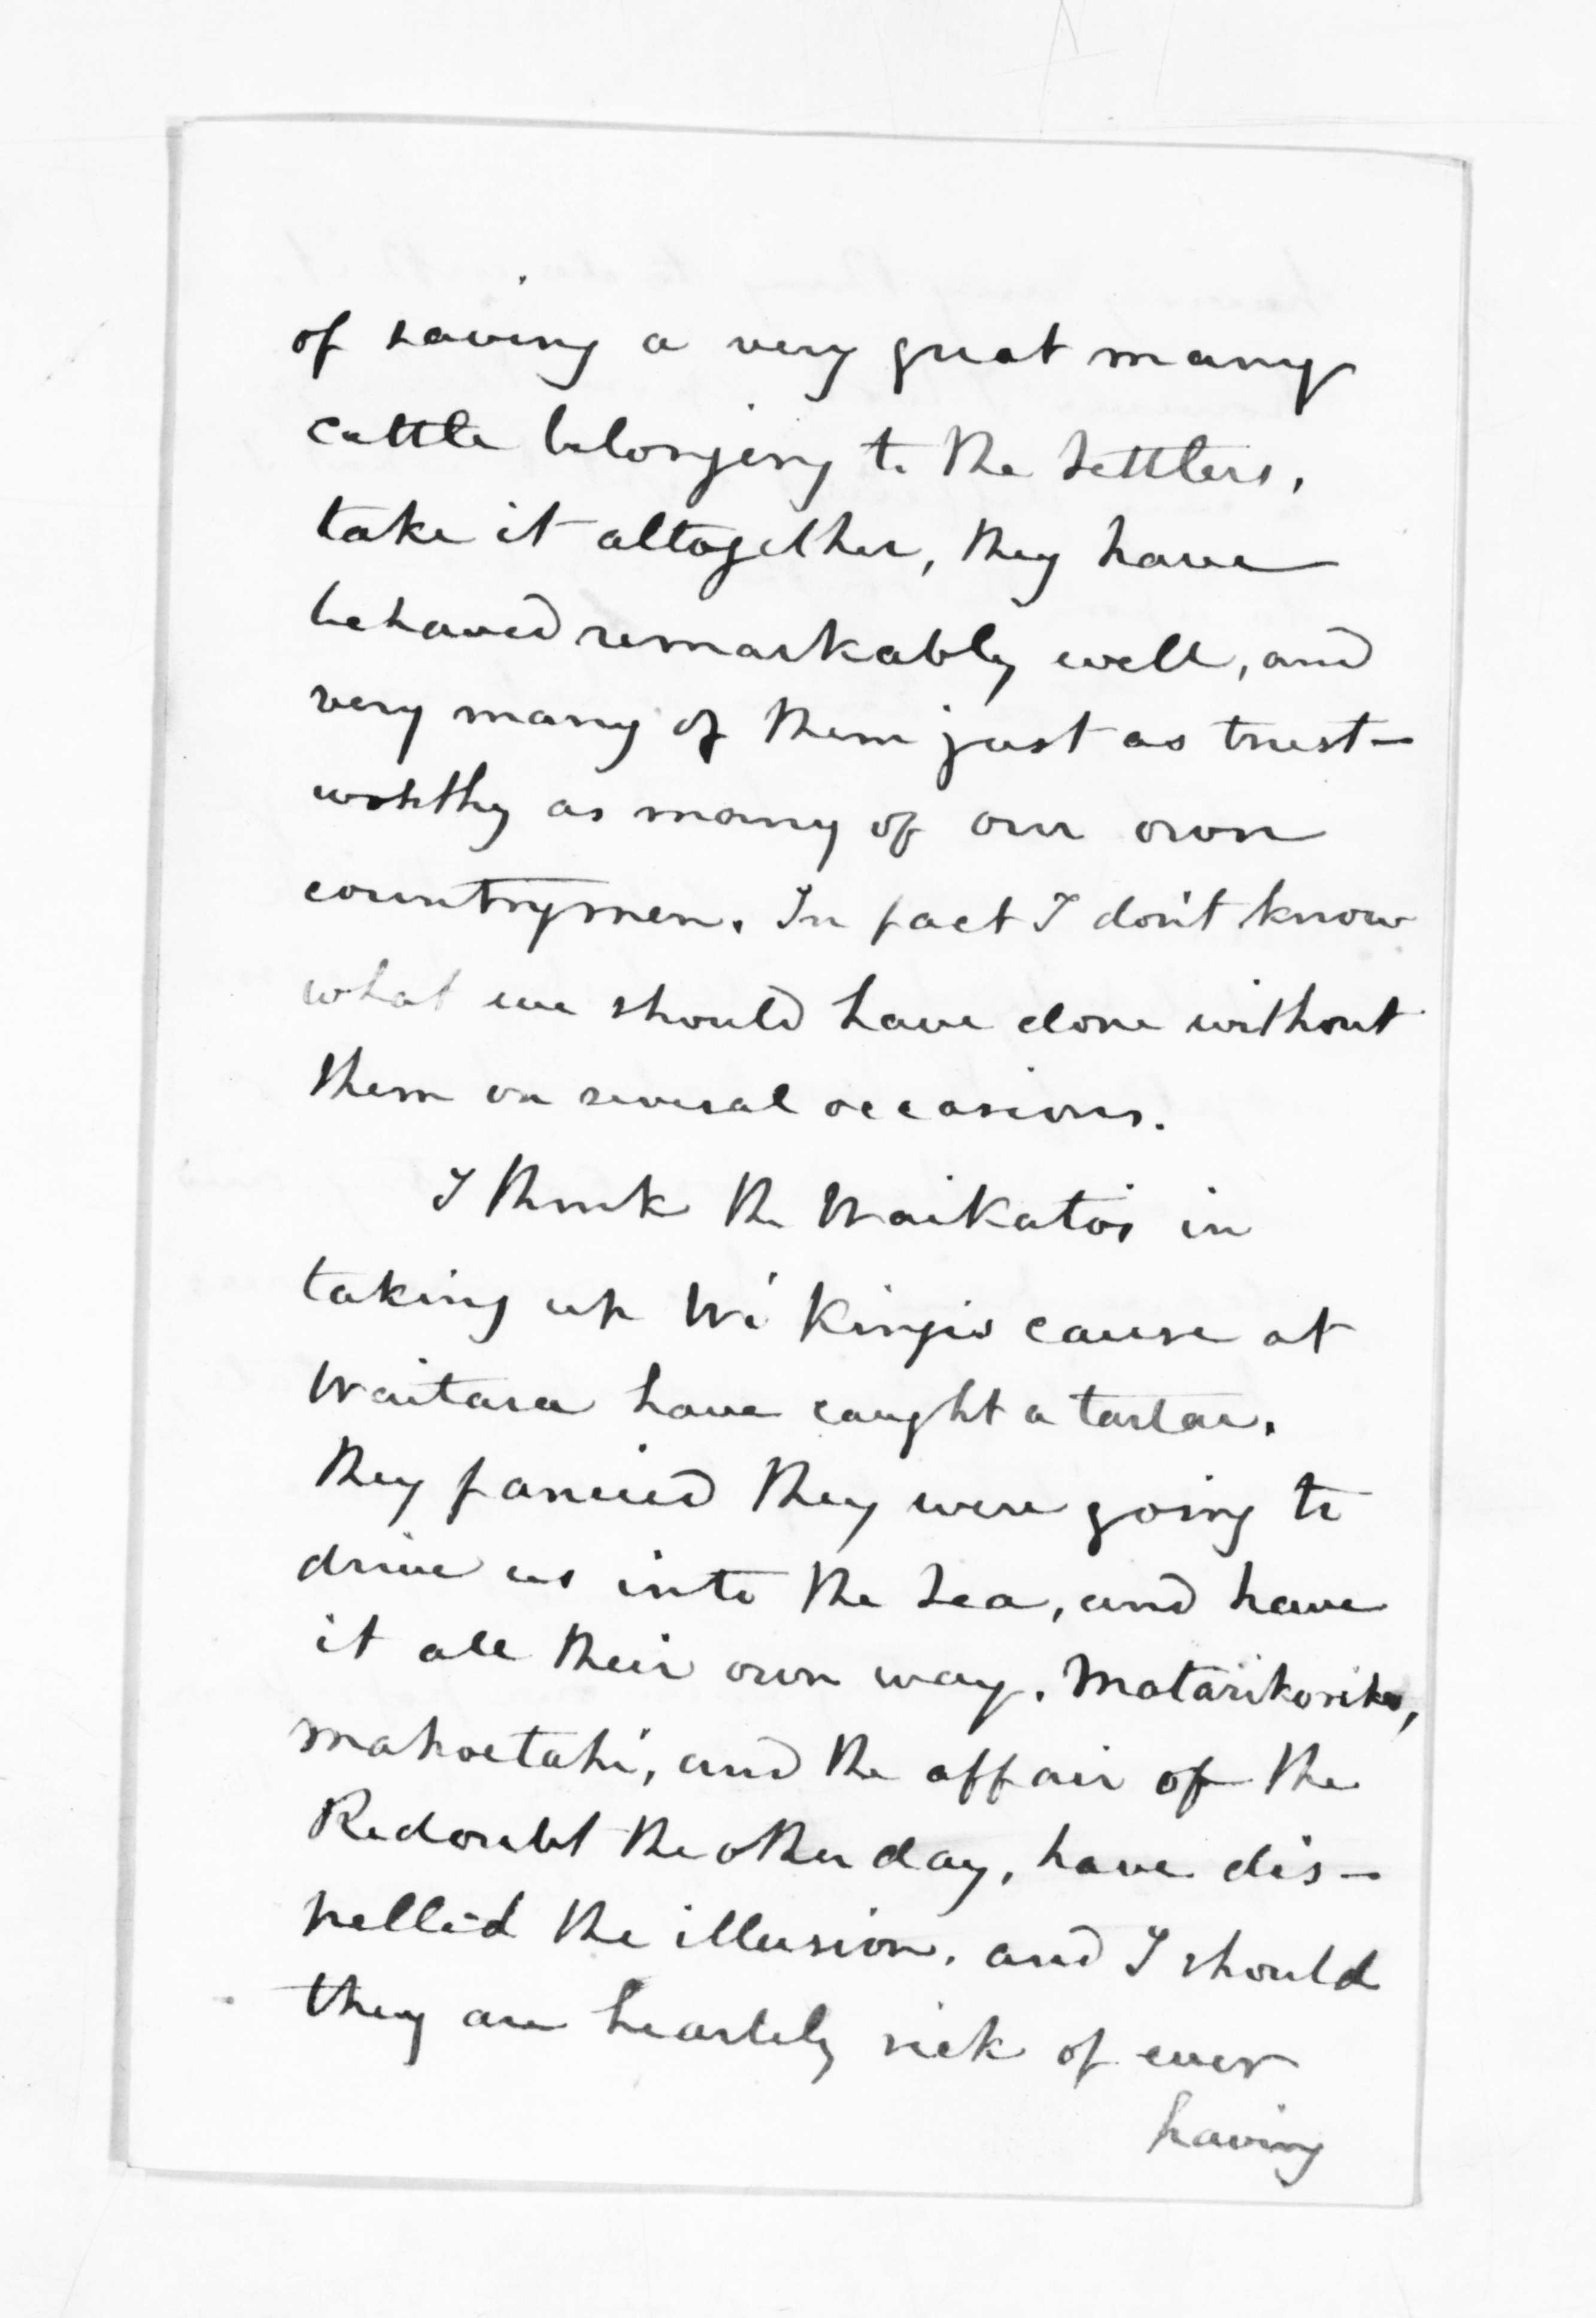 of saving a very great many
cattle belonging to the Settlers,
take it altogether, they have
behaved remarkably well, and
very many of them just as trust-
worthy as many of our own
countrymen. In fact I don't know
what we should have done without
them on several occasions.
I think the Waikatos in
taking up Wi Kingis cause at
Waitara have caught a tartar.
They fancied they were going to
drive us into the Sea, and have
it all their own way. Matarikoriko,
Mahoetahi, and the affair of the
Redoubt the other day, have dis-
pelled the illusion. and I should
they are heartily sick of ever
having